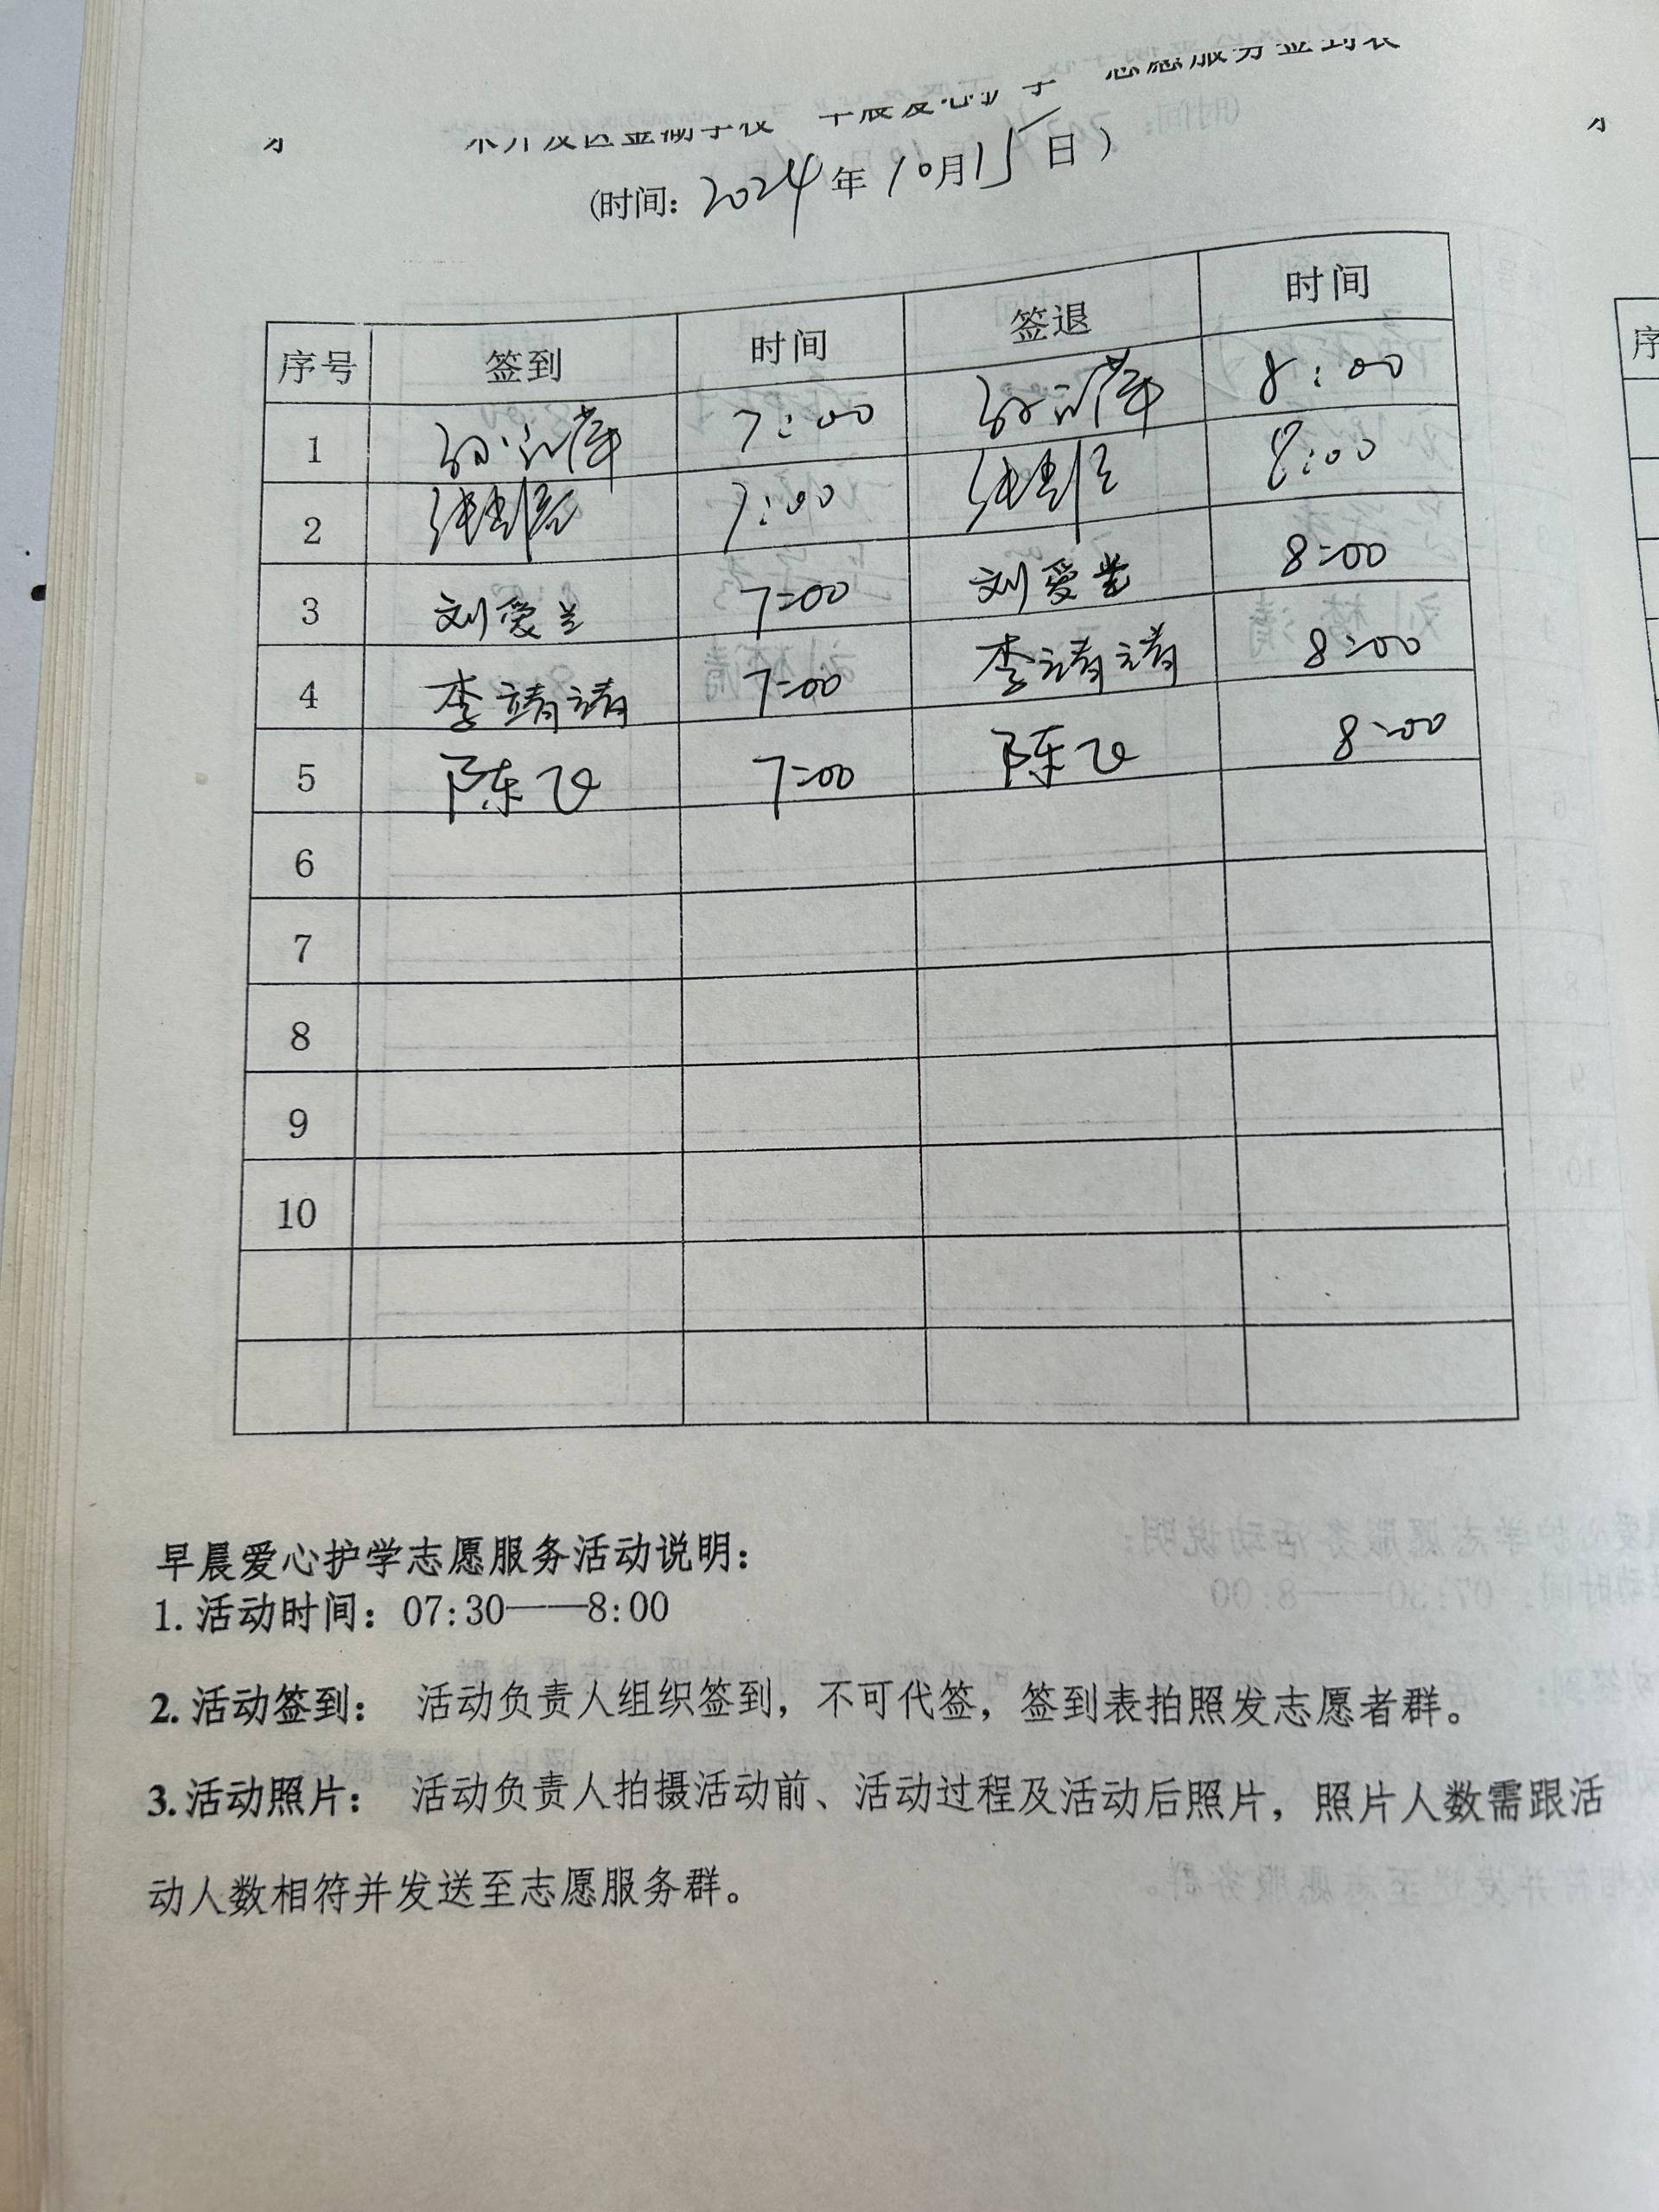 志愿服务签到表
区金湖学校 早晨爱心护学
(时间：2024年10月15日)
序号 签到 时间 签退 时间
1 7:00 8:00
2 7:00 8:00
3 刘爱兰 7:00 刘爱兰 8:00
4 李靖靖 7:00 李靖靖 8:00
5 陈飞 7:00 陈飞 8:00
6
7
8
9
10
序
早晨爱心护学志愿服务活动说明：
1.活动时间：07:30——8:00
2.活动签到： 活动负责人组织签到，不可代签，签到表拍照发志愿者群。
3.活动照片： 活动负责人拍摄活动前、活动过程及活动后照片，照片人数需跟活
动人数相符并发送至志愿服务群。